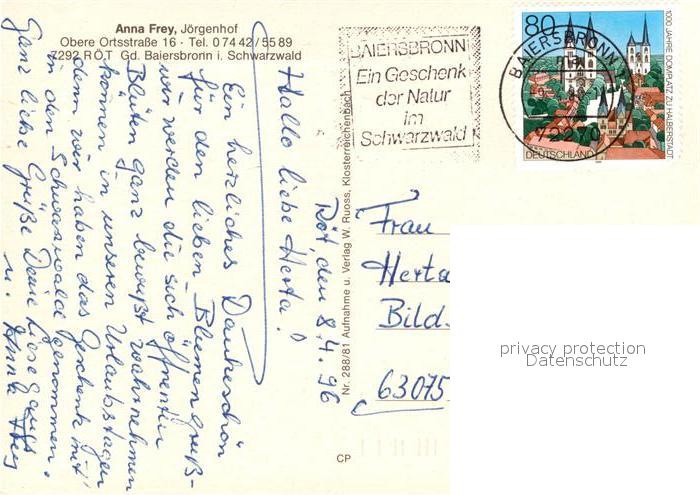 Anna Frey, Jörgenhof
Obere Ortsstraße 16 · Tel. 07442/5589
7292 RÖT Gd. Baiersbronn i. Schwarzwald
Röt den 8.4.96
Hallo liebe Herta!
Ein herzliches Dankeschön
für den lieben Blumengruß-
wir werden die sich öffnenden
Blüten ganz bewußt wahrnehmen
können in unseren Urlaubstagen
denn wir haben das Geschenk mit
in den Schwarzwald genommen.
Ganz liebe Grüße Deine Liese
u. Anna Frey
Nr. 288/81 Aufnahme u. Verlag W. Ruoss, Klosterreichenbach
CP
BAIERSBRONN
Ein Geschenk
der Natur
im
Schwarzwald
BAIERSBRONN 1
72270
80
DEUTSCHLAND
1000 JAHRE DOMPLATZ ZU HALBERSTADT
Frau
Herta
Bild.
63075
privacy protection
Datenschutz